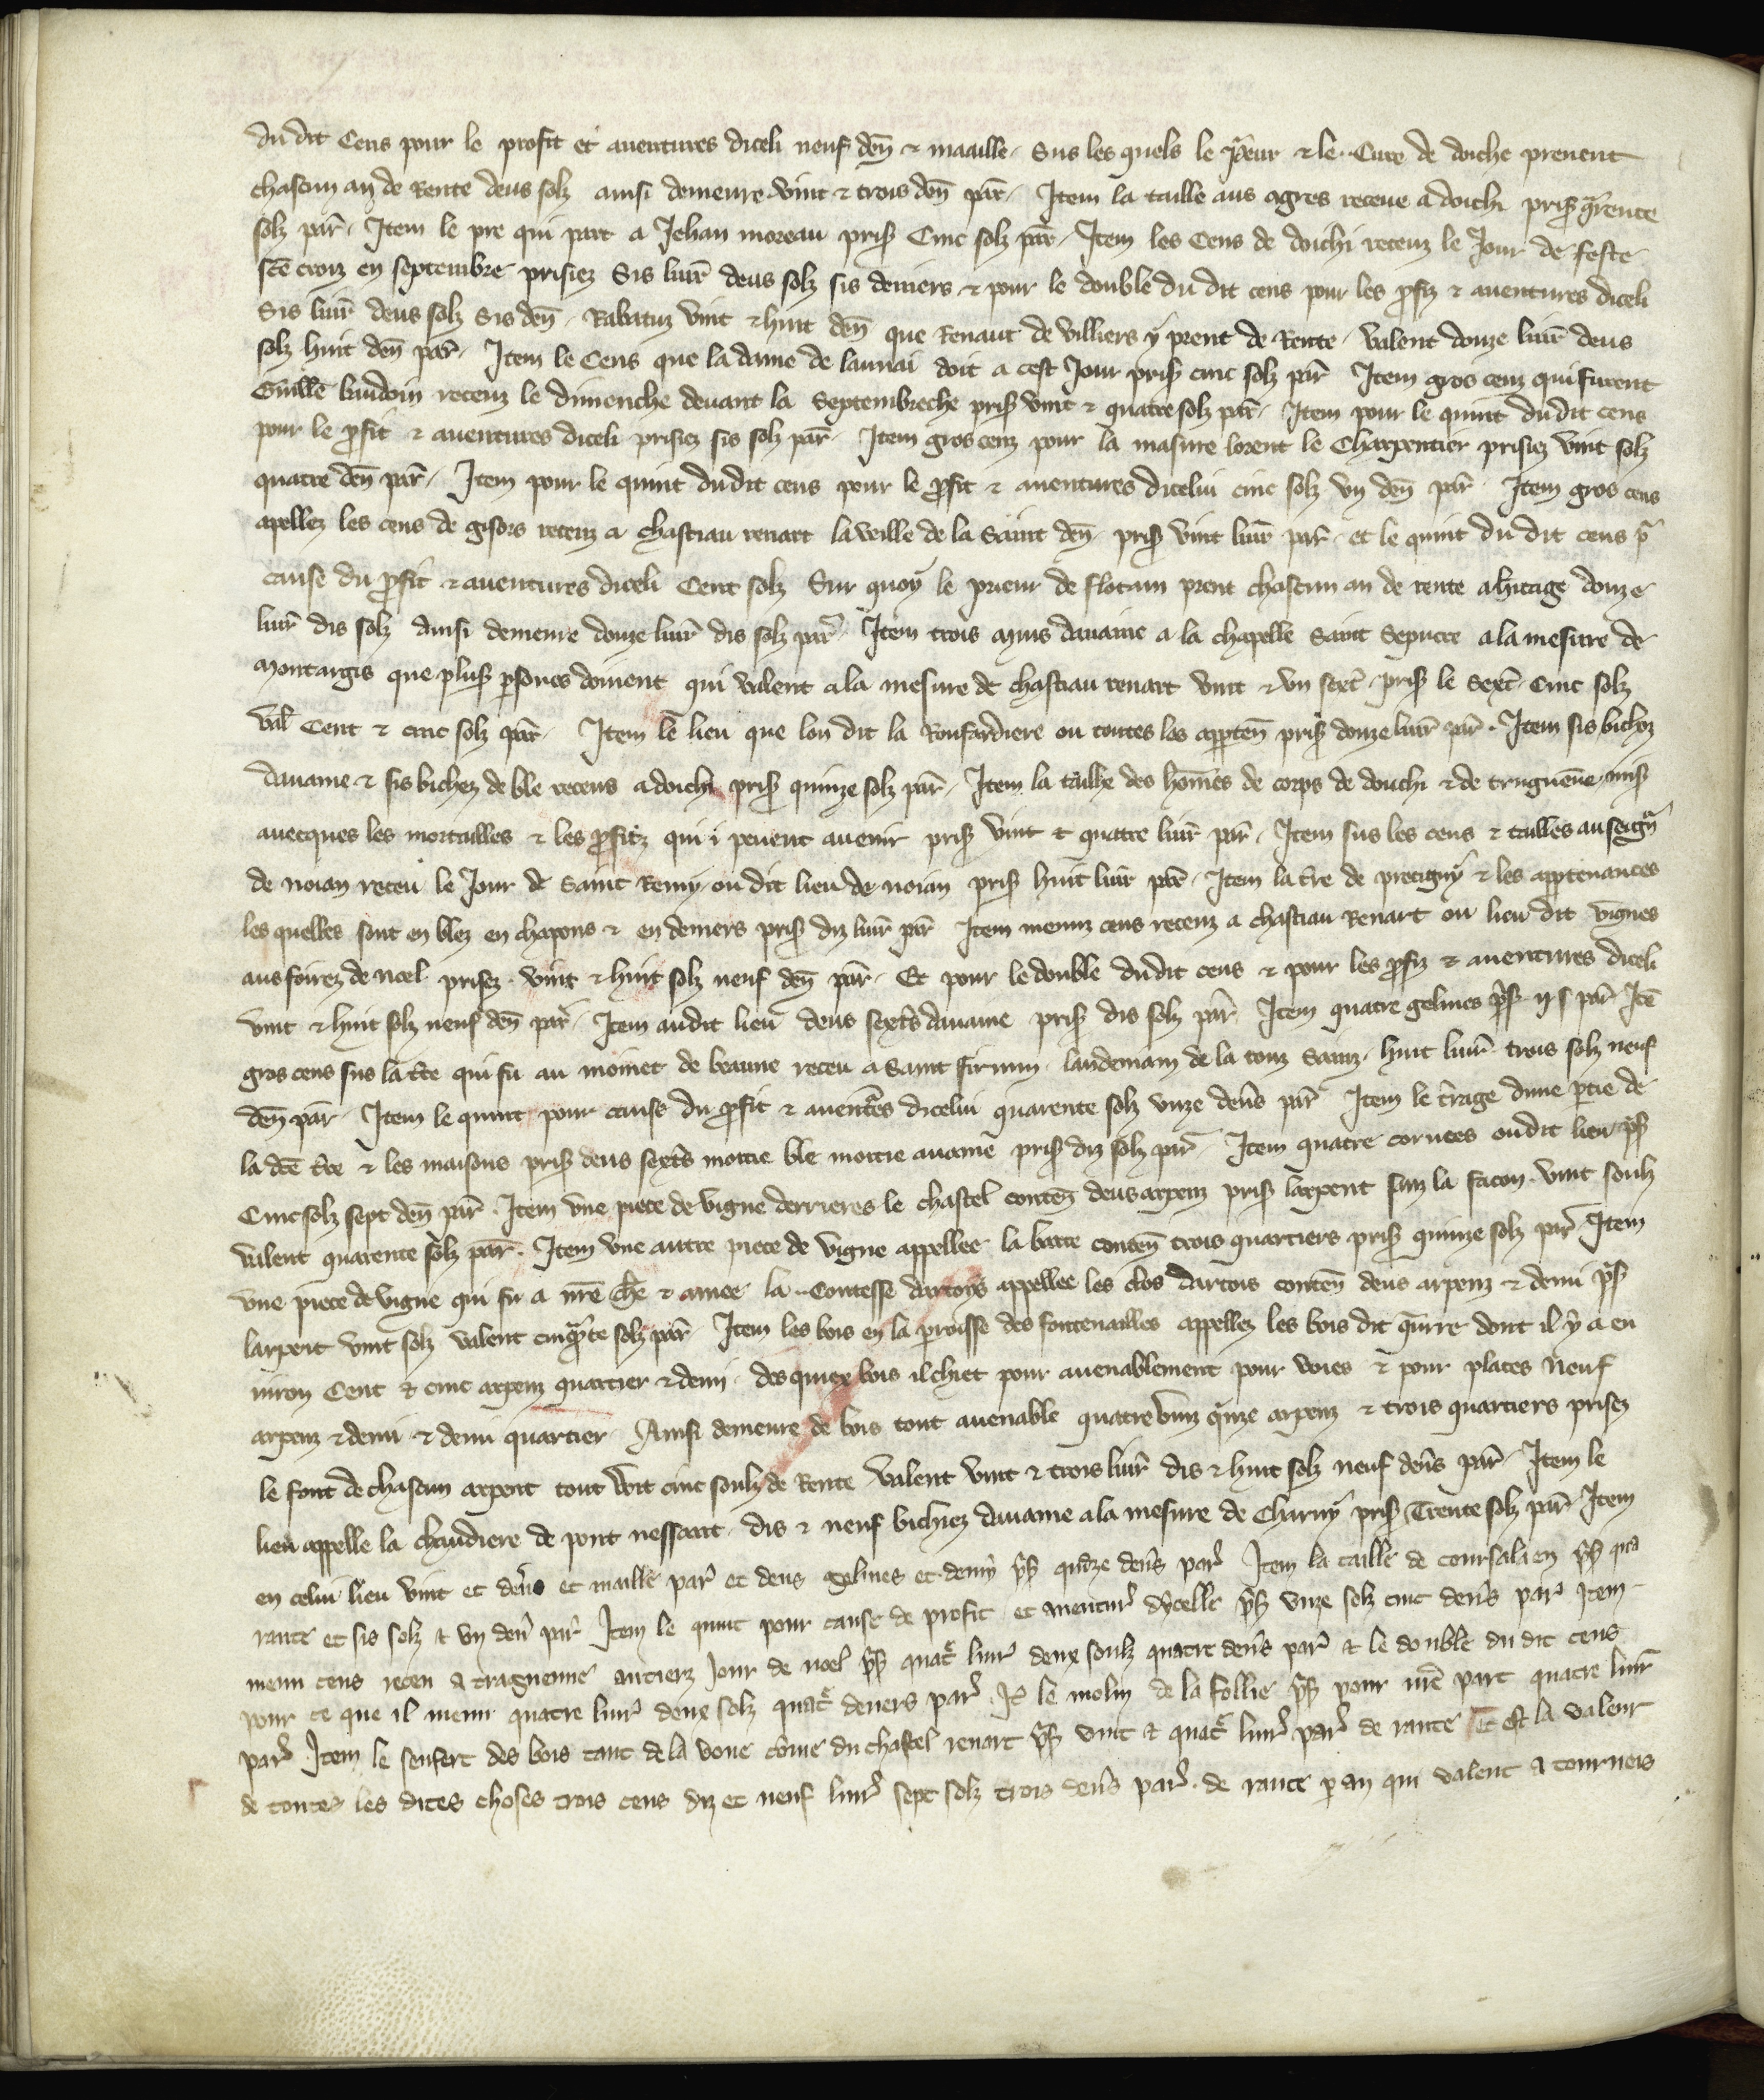 du dit Cens pour le profit et auentures diceli neuf deñ ⁊ maaille. Sus les quels le p̃eur ⁊ le. Cure de doiche prenent
chascun an de Rente deus solz ainsi demeure vint ⁊ trois deñ par̃. Item la taille aus ogres receue a doichi pris q̃rente
solz par̃. Item le pre qui part a Jehan moreau pris Cinc solz par̃. Item les Cens de doichi receuz le Jour de feste
sc̃e croiz en septembre prisiez Sis liur̃ deus solz sis deniers ⁊ pour le double du dit cens pour les ꝓfiz ⁊ auentures diceli
Sis liur̃ deus solz Sis deñ. Rabatuz vint ⁊ huit deñ que Renaut de villiers y prent de Rente. valent douze liur̃ deus
solz huit deñ par̃. Item le Cens que la dame de launai doit a cest Jour pris cinc solz par̃ Item gros cenz qui furent
Guillẽ baudoin receuz le dimenche deuant la Septembreche pris vint ⁊ quatre solz par̃. Item pour le quint du dit cens
pour le ꝓfit ⁊ auentures diceli prisiez sis solz par̃. Item gros cenz pour la masure lorent le Charpentier prisiez vint solz
quatre deñ par̃. Item pour le quint du dit cens pour le ꝓfit ⁊ auentures dicelui cinc solz vn deñ par̃. Item gros cens
apellez les cens de gisors receuz a chastiau renart la veille de la Saint deñ. pris vint liur̃ par̃. et le quint du dit cens pr̃
cause du ꝓfit ⁊ auentures diceli Cent solz Sur quoy le prieur de flotain prent chascun an de rente a h̃itage douze
liur̃ dis solz Ainsi demeure douze liur̃ dis solz par̃. Item trois muis dauaine a la chapelle Saint Sepucre a la mesure de
montargis que plus̃ ꝑsones doiuent qui valent a la mesure de chastiau renart vint ⁊ vn sext̃. pris le Sext̃. Cinc solz
val̃ Cent ⁊ cinc solz par̃. Item le lieu que lon dit la Ronfardiere ou toutes les appteñ pris douze liur̃ par̃. Item sis bichez
dauaine ⁊ sis bichez de ble receus a doichi pris quinze solz par̃. Item la taille des hom̃es de corps de douchi ⁊ de triguen̄e mis
auecques les mortailles ⁊ les ꝓfitz qui i peuent auenir pris vint ⁊ quatre liur̃ par̃. Item sus les cens ⁊ tailles au seign̄r
de noian receu le Jour de Saint Remy ou dit lieu de noian pris huit liur̃ par̃. Item la t̃re de precigny ⁊ les apptenances
les quelles sont en blez en chapons ⁊ en deniers pris diz liur̃ par̃ Item menuz cens receuz a chastiau Renart ou lieu dit vignes
aus foirez de noel prisez. vint ⁊ huit solz neuf deñ par̃. Et pour le double du dit cens ⁊ pour les ꝓfiz ⁊ auentures diceli
vint ⁊ huit solz neuf deñ par̃. Item au dit lieu deus sext̃s dauaine pris dis solz par̃. Item quatre gelines pris ij s par̃ Itẽ
gros cens sus la t̃re qui fu au moinet de beaune receu a Saint firmin. landemain de la touz Sainz. huit liur̃ trois solz neuf
deñ par̃. Item le quint pour cause du ꝓfit ⁊ auent̃es dicelui quarente solz vnze deñs par̃ Item le t̃rage dune ptie de
la dc̃e t̃re ⁊ les maisons pris deus sext̃s moitie ble moitie auaine pris diz solz par̃. Item quatre coruees ou dit lieu pris
Cinc solz sept deñ par̃. Item vne piece de vigne derrieres le chastel conteñ deus arpenz pris larpent sanz la facon. vint soulz
valent quarente solz par̃. Item vne autre piece de vigne appellee la barre conteñ trois quartiers pris quinze solz par̃ Item
vne piece de vigne qui fu a nr̃e ch̃e ⁊ amee la. Contesse dartoys appellee les clos dartois conteñ deus arpenz ⁊ demi pris
larpent vint solz valent cinqũte solz par̃ Item les bois en la proisse des fontenailles appellez les bois dit quarre dont il y a en
uiron Cent ⁊ cinc arpenz quartier ⁊ demi. des quiex bois il chiet pour auenablement pour voies ⁊ pour places neuf
arpenz ⁊ demi ⁊ demi quartier. Ainsi demeure de bois tout auenable quatre vinz q̃nze arpenz ⁊ trois quartiers prisez
le font de chascun arpent tout wit cinc soulz de Rente valent vint ⁊ trois liur̃ dis ⁊ huit solz neuf deñs par̃. Item le
lieu appelle la chaudiere de pont nessaart. dis ⁊ neuf bichiez dauaine a la mesure de Charny pris Trente solz par̃ Item
en celui lieu vint et deñs et maille par̃ et deus gelines et demy pris quinze deñs par̃ Item la taille de coursala en pris qua
rante et sis solz ⁊ vn deñ par̃ Item le quint pour cause de profit et auentur̃ dycelle pris vnze solz cinc deñs par̃ Item
menu cens receu a traguenne antierz Jour de noel pris quat̃ liur̃ deux soulz quatre deñs par̃ ⁊ le double du dit cens
pour ce que il menu quatre liur̃ deux solz quat̃ deners par̃. Jt̃ le molin de la follie pris pour nr̃e part quatre liur̃
par̃. Item le seufert des bois tant de la voue cõme du chastel renart pris vint ⁊ quat̃ liur̃ par̃ de rante Et Est la valeur
de toutes les dites choses trois cens diz et neuf liur̃ sept solz trois deñs par̃. de rante p an qui valent a tournois